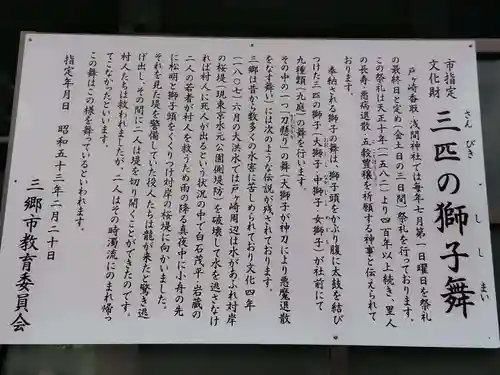 市指定
文化財
三匹の獅子舞
さんびきのししまい
戸ヶ崎香取 浅間神社では毎年七月第一日曜日を祭礼
の最終日と定め(金土日の三日間)祭礼を行っております。
この祭礼は天正十年(一五八二)より四百年以上続き、里人
の長寿、悪病退散、五穀豊穣を祈願する神事と伝えられて
おります。
奉納される獅子の舞は、獅子頭をかぶり腹に太鼓を結び
つけた三匹の獅子(大獅子・中獅子・女獅子)が社前にて
九種類(九庭)の舞を行います。
その中の一つ「刀懸り」の舞(大獅子が神刀により悪魔退散
をなす舞)には次のような伝説が残されております。
三郷は昔から数多くの水害に苦しめられており文化四年
(一八〇七)六月の大洪水では戸ヶ崎周辺は水があふれ対岸
の桜堤(現東京水元公園側堤防)を破壊して水を逃さなけ
れば村人に死人が出るという状況の中で白石茂平・岩蔵の
二人の若者が村人を救うため雨の降る真夜中に小舟の先
に松明と獅子頭をくくりつけ対岸の桜堤に向かいました。
それを見た堤を警備していた役人たちは龍が来たと驚き逃
げ出し、その間に二人は堤を切り開くことができたのです。
村人たちは救われましたが、二人はその時濁流にのまれ帰っ
てこなかったといいます。
この舞はこの様を舞っているといわれます。
指定年月日 昭和五十三年二月二十日
三郷市教育委員会